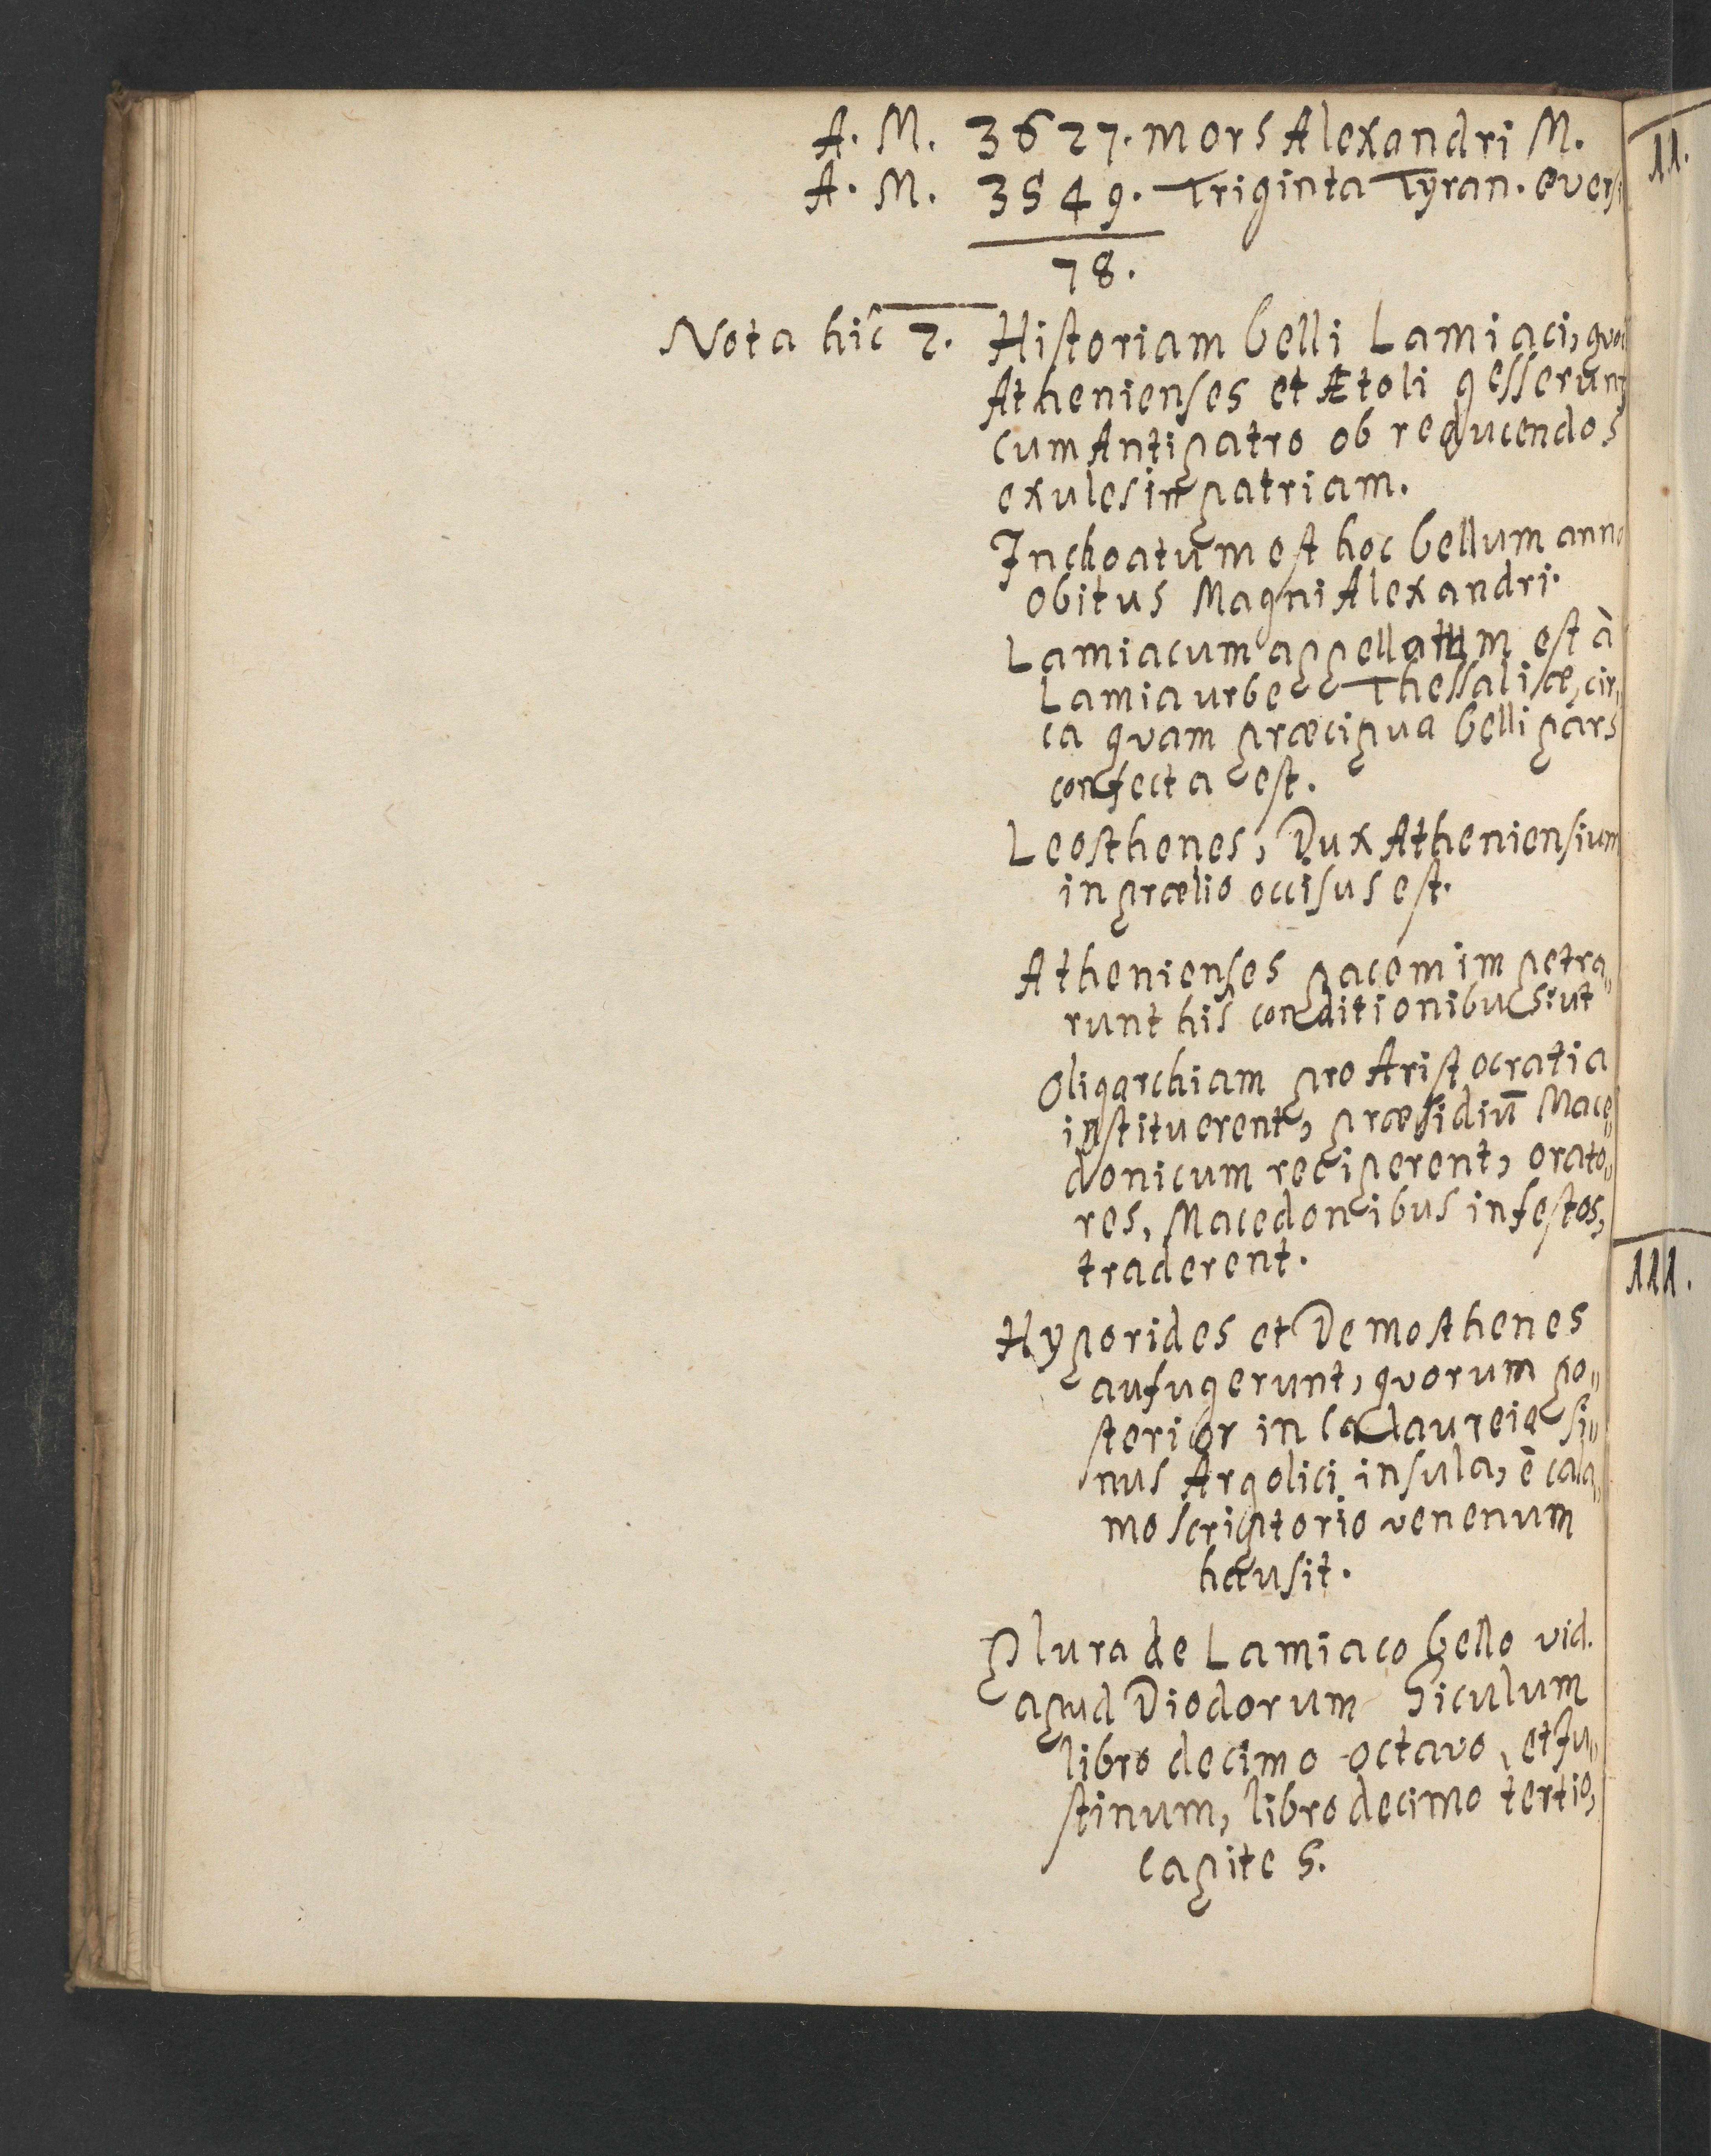 A. M. 3627. mors Alexandri M.
A. M. 3549. Triginta Tyran. eversi
78.
Nota hîc 2. Historiam belli Lamiaci, quod
Athenienses et Ætoli gesserunt
cum Antipatro ob reducendos
exules in patriam.
Inchoatum est hoc bellum anno
obitus Magni Alexandri.
Lamiacum appellatum est à
Lamia urbe Thessaliæ, cir„
ca quam præcipua belli pars
confecta est.
Leosthenes, Dux Atheniensium
in prælio occisus est.
Athenienses pacem impetra„
runt his conditionibus, ut
Oligarchiam pro Aristocratia
instituerent, præsidiū Mace„
donicum reciperent, orato„
res, Macedonibus infestos,
traderent.
Hyporides et Demosthenes
aufugerunt, quorum po„
sterior in Calaureia si„
nus Argolici insula, è cala„
mo scriptorio venenum
hausit.
Plura de Lamiaco bello vid.
apud Diodorum Siculum
libro decimo octavo, et Ju„
stinum, libro decimo tertio,
capite 5.
11.
111.